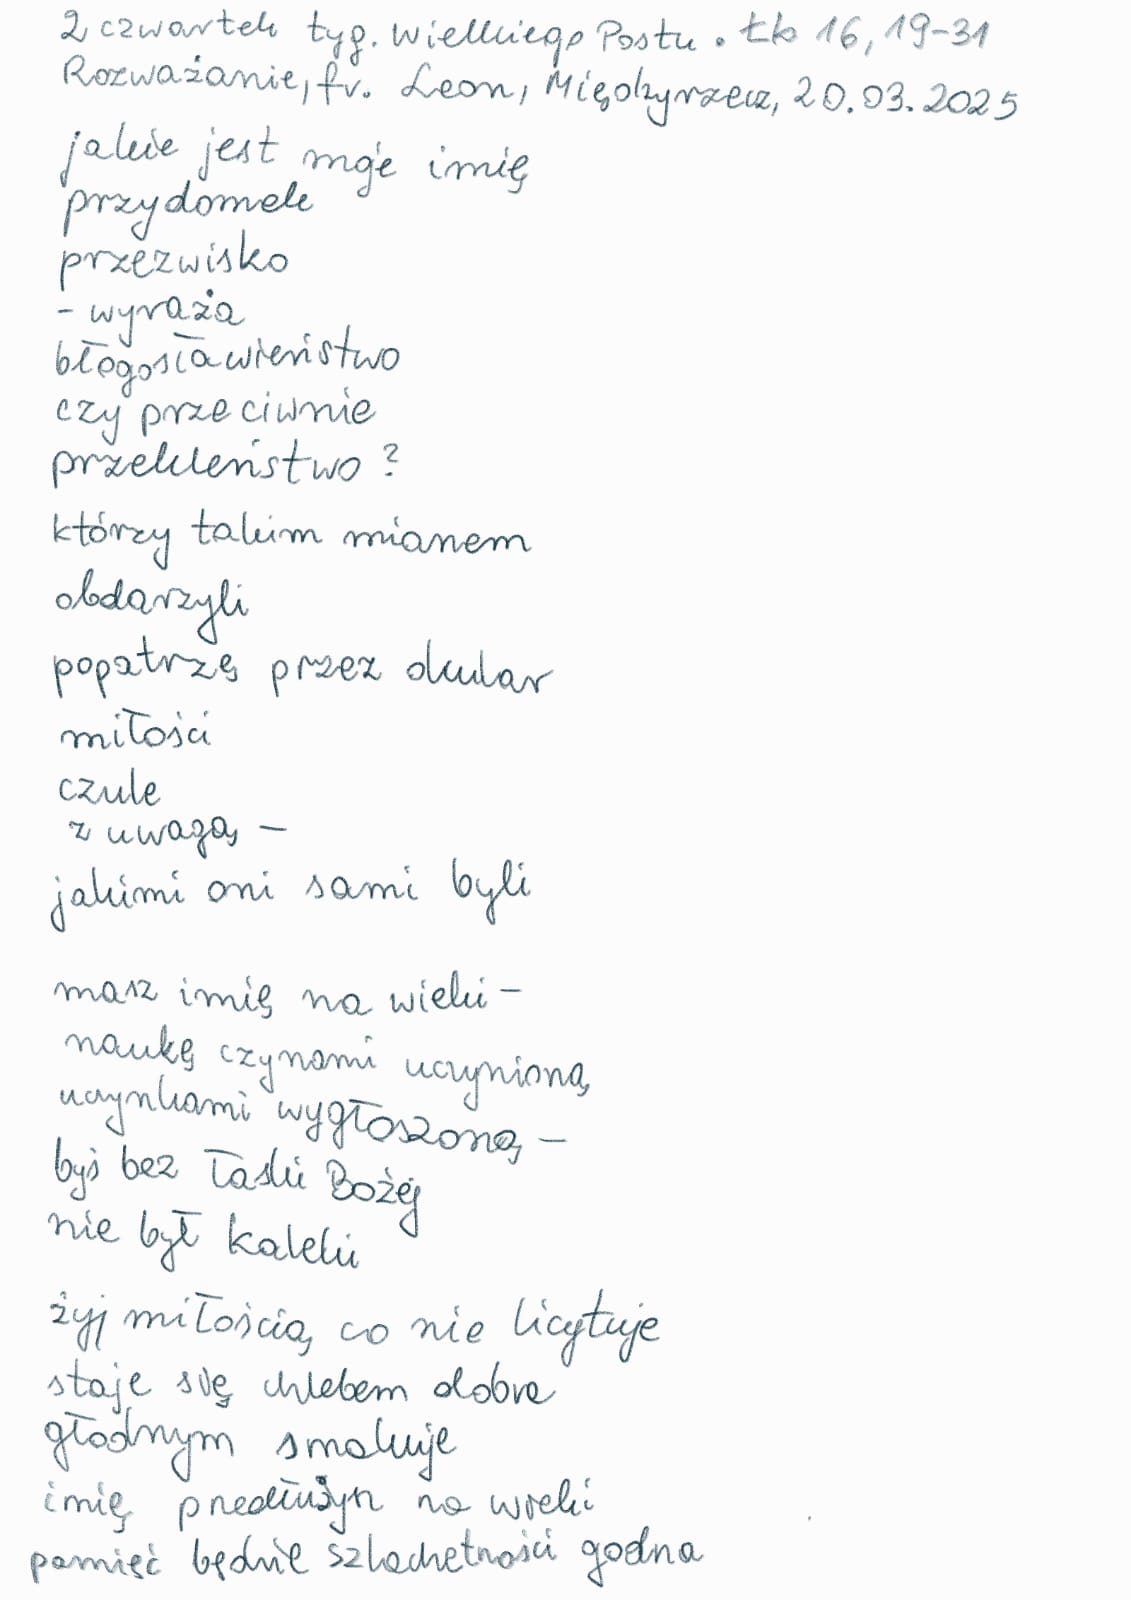 2 czwartek tyg. Wielkiego Postu. Łk 16, 19-31
Rozważanie, fr. Leon, Międzyrzecz, 20.03.2025
jakie jest moje imię
przydomek
przezwisko
- wyraża
błogosławieństwo
czy przeciwnie
przekleństwo?
którzy takim mianem
obdarzyli
popatrzę przez okular
miłości
czule
z uwagą -
jakimi oni sami byli
masz imię na wieki -
naukę czynami uczynioną
uczynkami wygłoszoną -
byś bez łaski Bożej
nie był kaleki
żyj miłością co nie licytuje
staje się chlebem dobra
głodnym smakuje
imię przedłużyn na wieki
pamięć będzie szlachetności godna